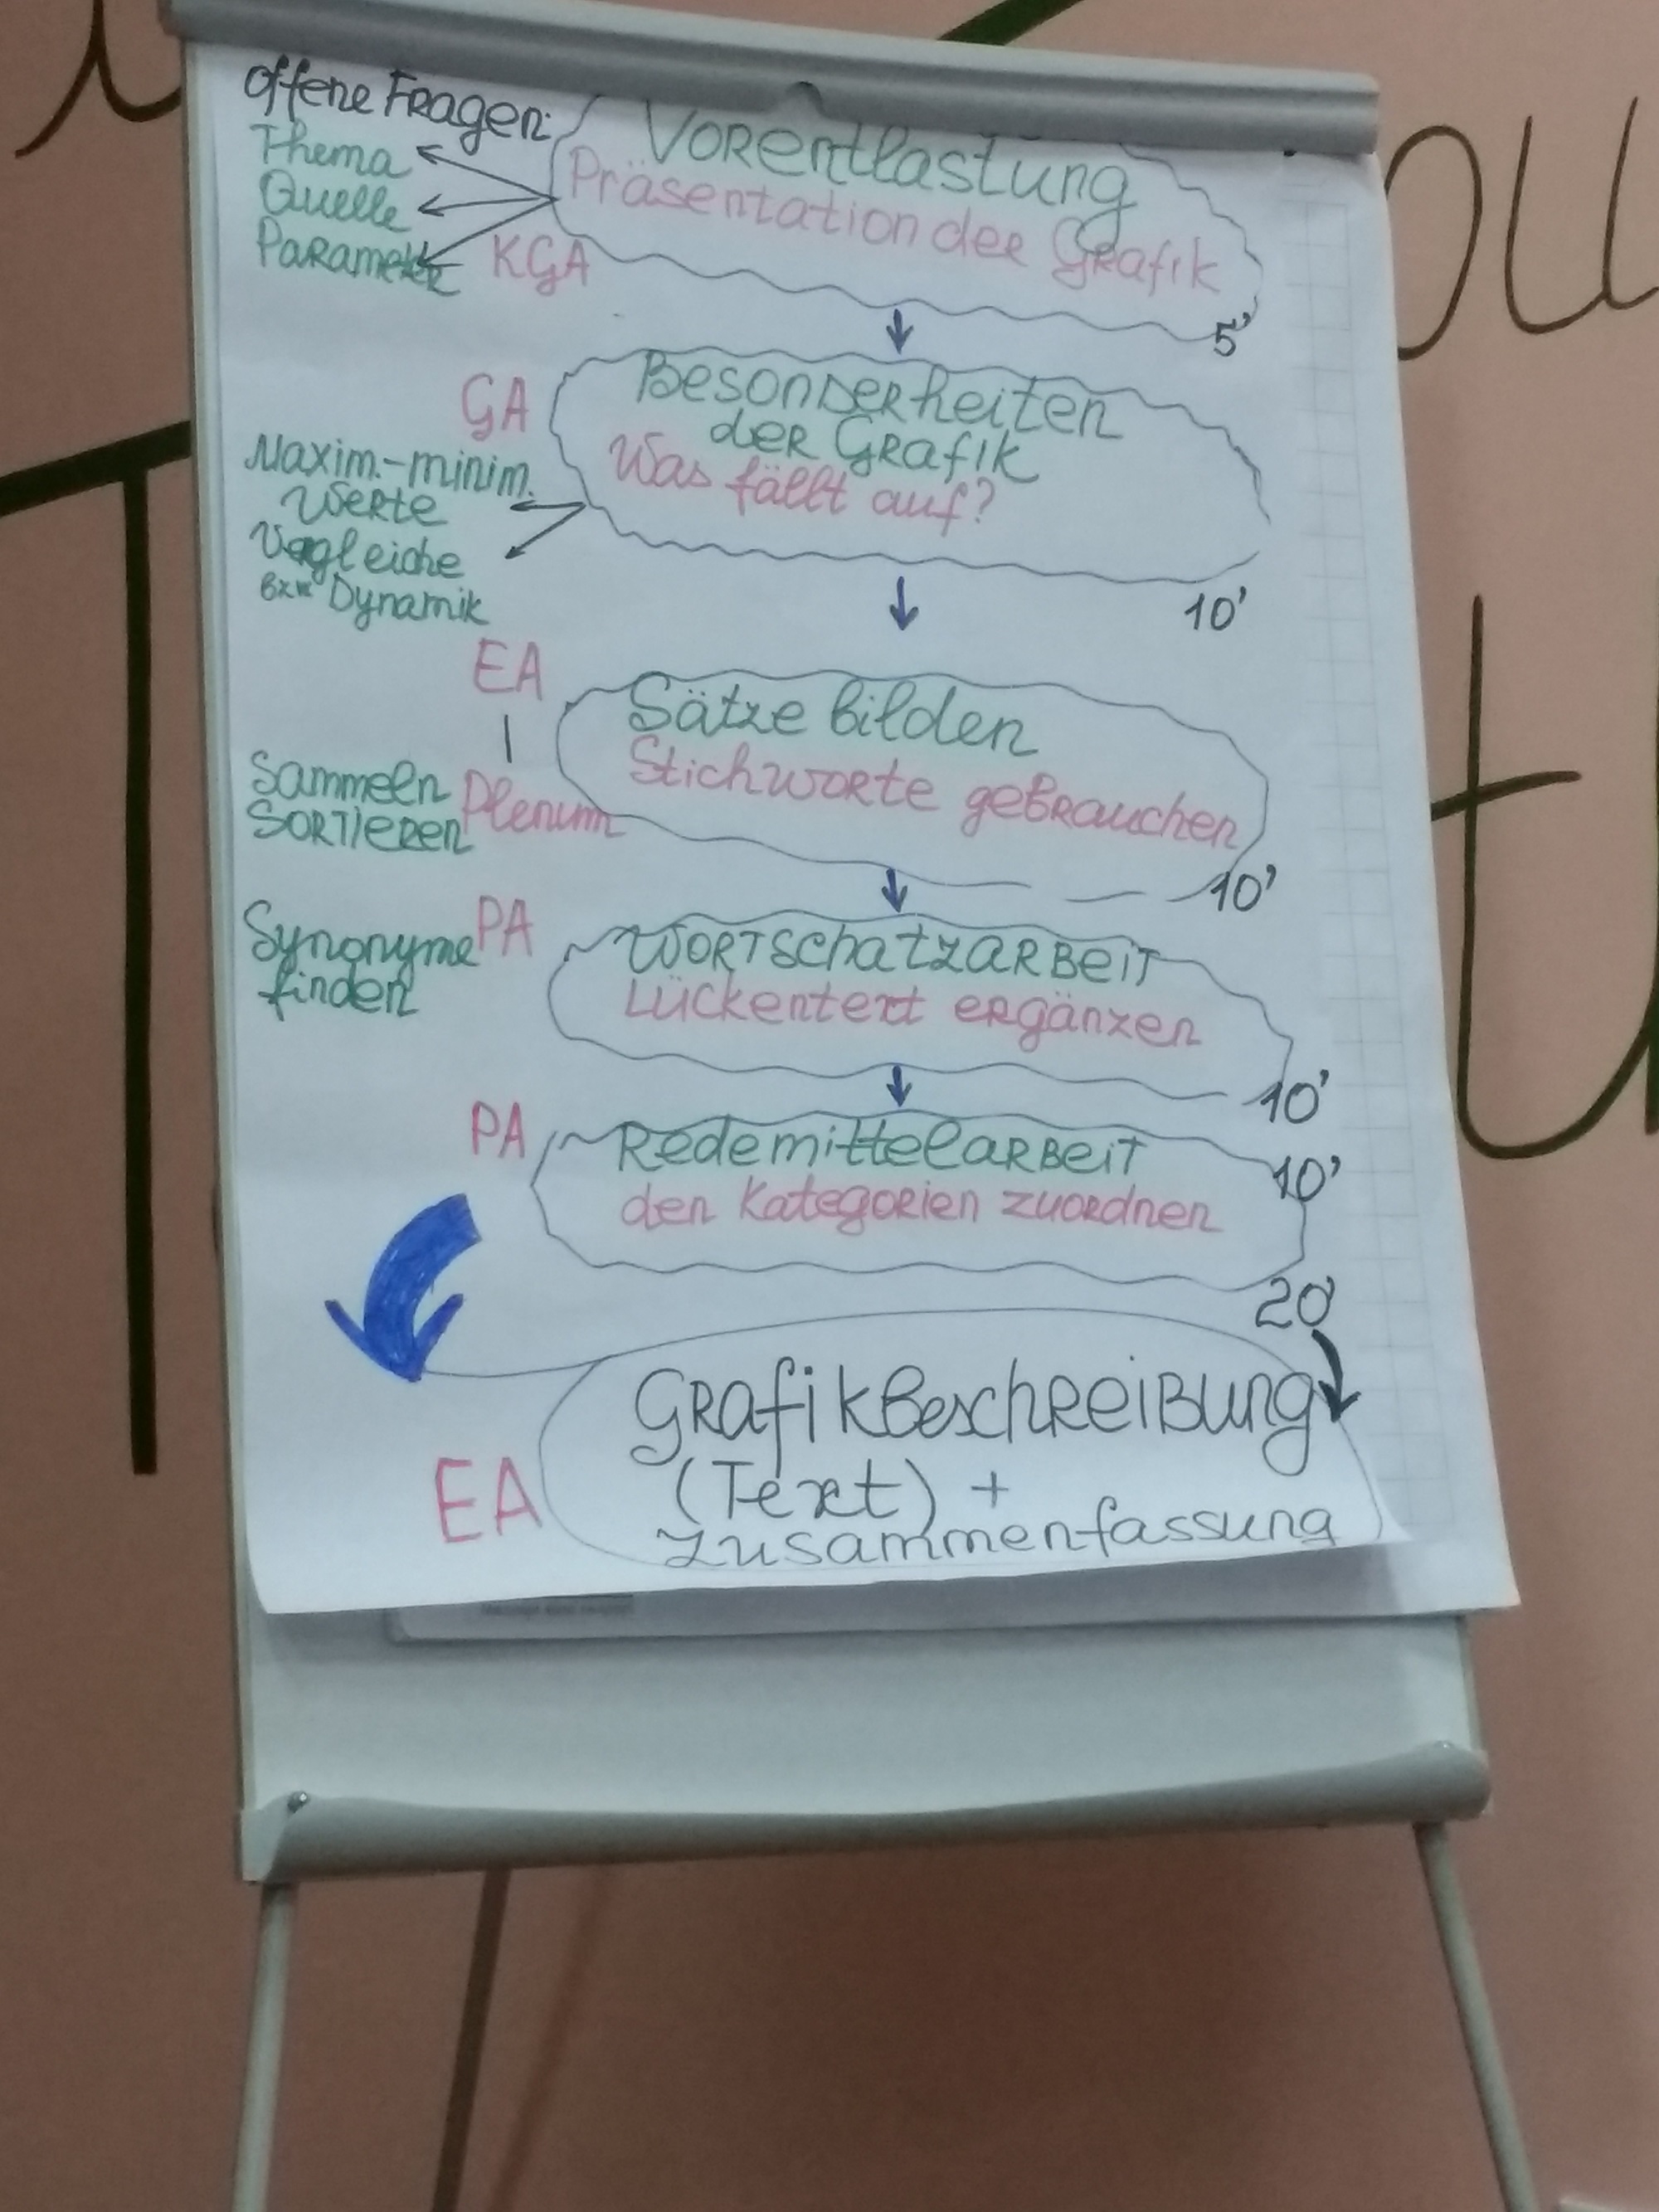 Offene Fragen:
Thema
Quelle
Parameter
KGA
Vorentlastung
Präsentation der Grafik
5'
GA
Besonderheiten
der Grafik
Was fällt auf?
Maxim.-minim.
Werte
Vergleiche
bzw Dynamik
10'
EA
Plenum
Sammeln
Sortieren
Sätze bilden
Stichworte gebrauchen
10'
PA
Synonyme
finden
Wortschatzarbeit
Lückentext ergänzen
10'
PA
Redemittelarbeit
den Kategorien zuordnen
10'
20'
EA
Grafikbeschreibung
(Text) +
Zusammenfassung